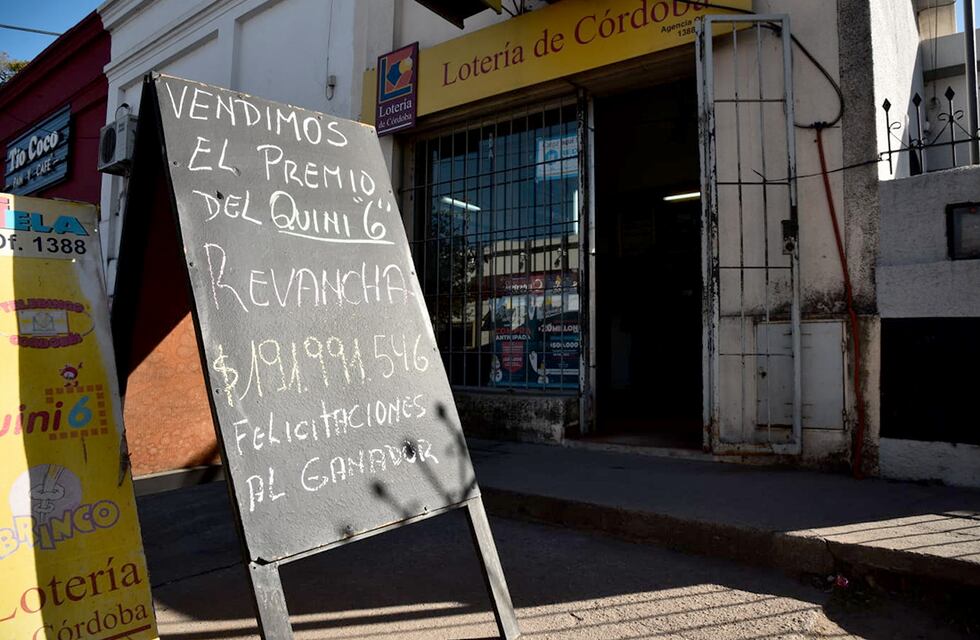 Lotería de Córdoba
Agencia Of.
1388
Lotería
de Córdoba
Tío Coco
PAN Y CAFÉ
VENDIMOS
EL PREMIO
DEL QUINI "6"
REVANCHA
$191.991.546
FELICITACIONES
AL GANADOR
TELA
Of. 1388
TELEBINGO
CORDOBÉS
uini 6
BRINCO
Lotería
Córdoba
COMPRA
ANTICIPADA
$500.000